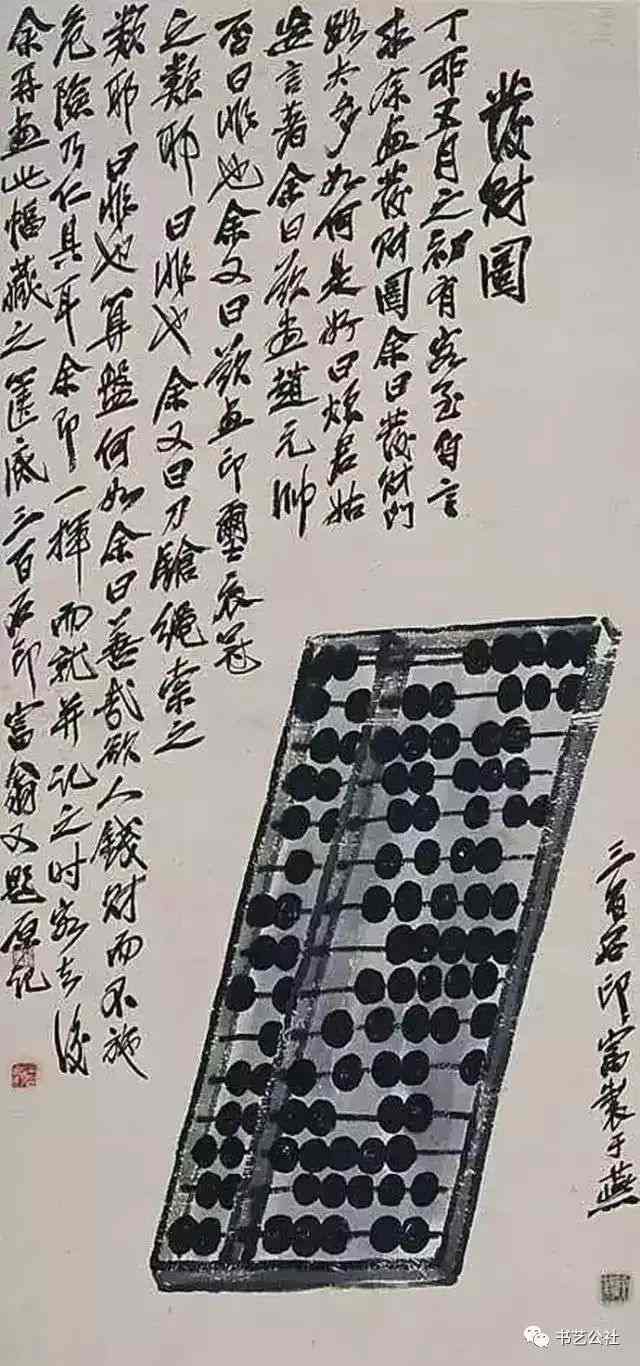 發財圖
丁卯五月之初有客至自言
求余畫發財圖余曰發財門
路太多如何是好曰煩君姑
妄言著余曰欲畫趙元帥
否曰非也余又曰欲畫印璽衣冠
之類耶曰非也余又曰刀鎗繩索之
類耶曰非也算盤何如余曰善哉欲人錢財而不施
危險乃仁具耳余即一揮而就并記之時客去後
余再畫此幅藏之篋底三百石印富翁又題原記
三百石印富製于燕
书艺公社